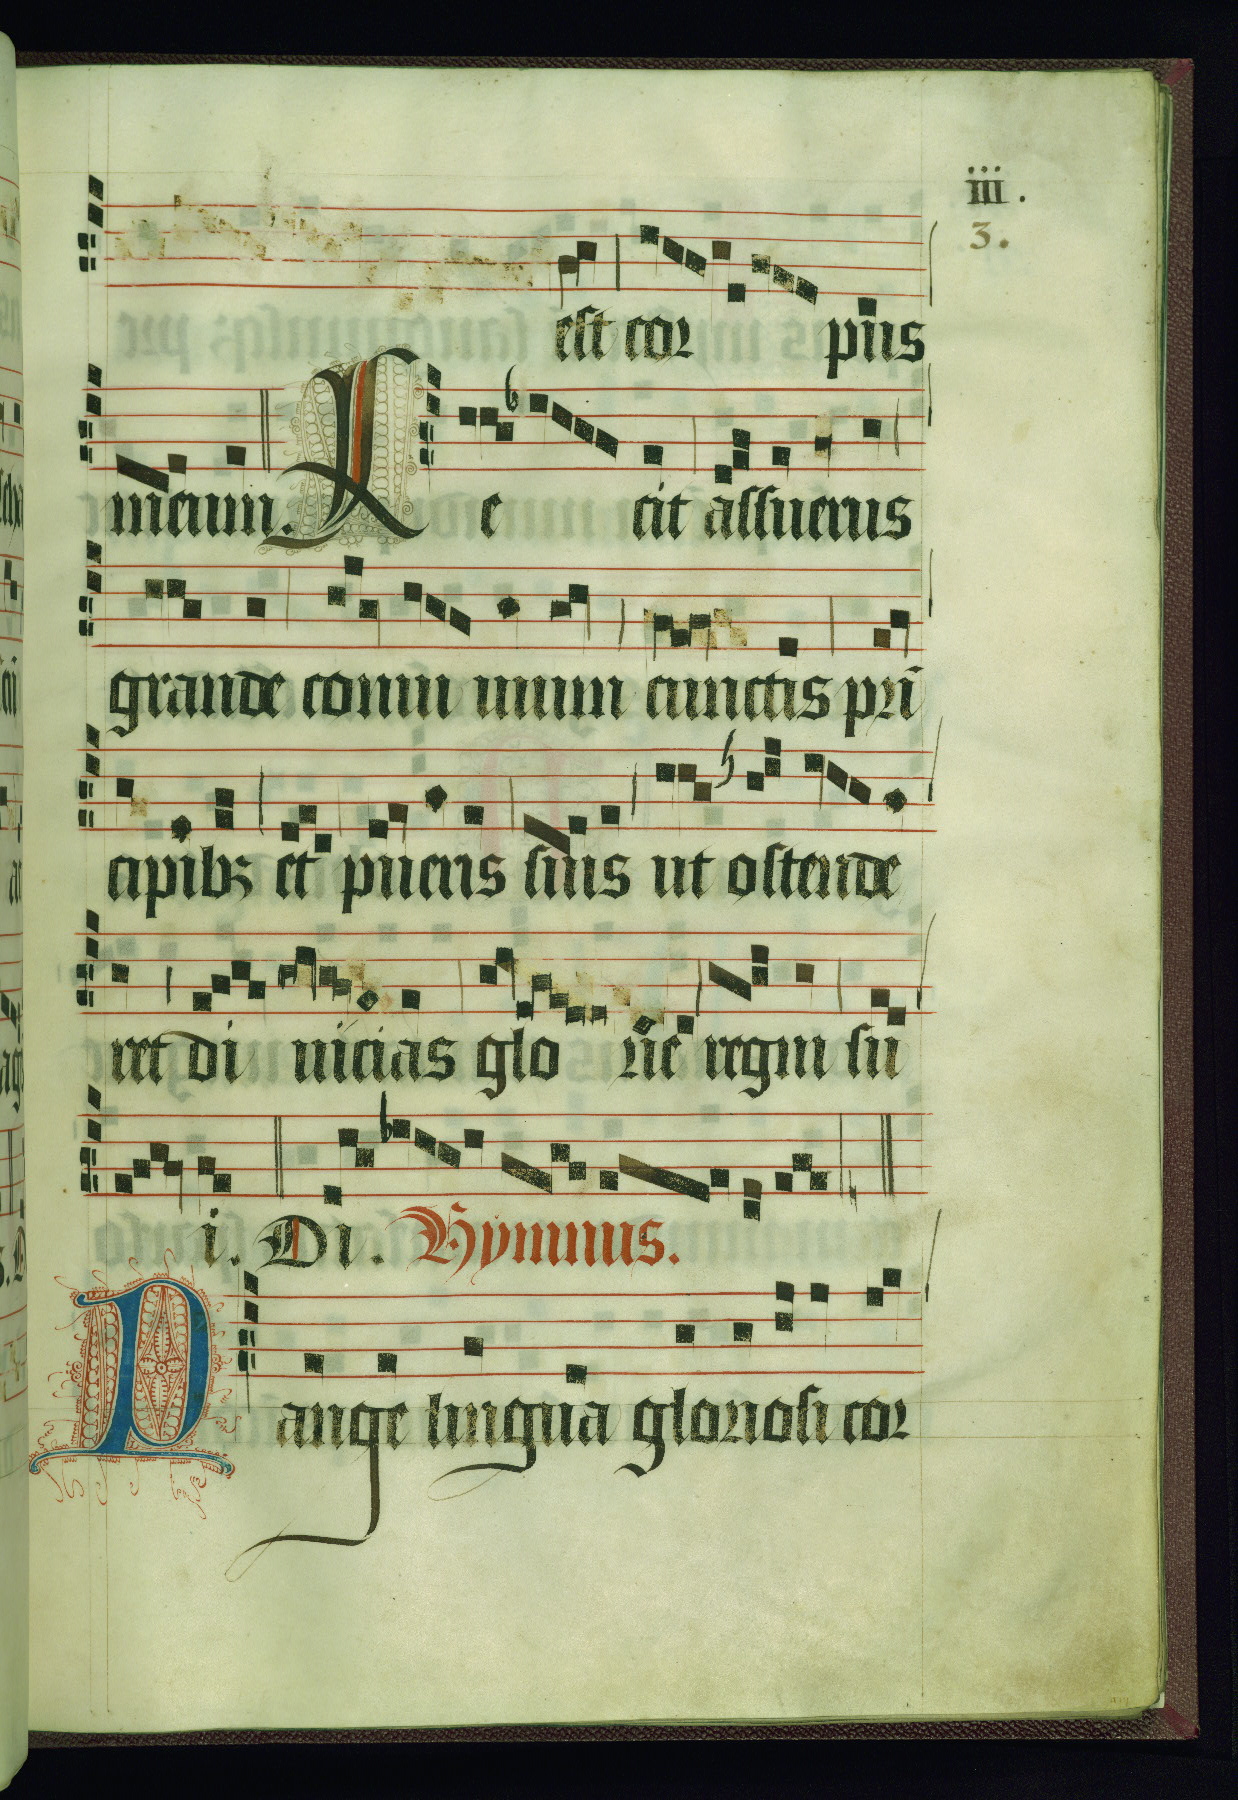 iii.
3.
est cor pus
meum. Fe cit assuerus
grande conui uium cunctis pri
cipibꝫ et pueris suis ut ostende
ret di uicias glo rie regni su
i. Di. Hymnus.
Pange lingua gloriosi cor